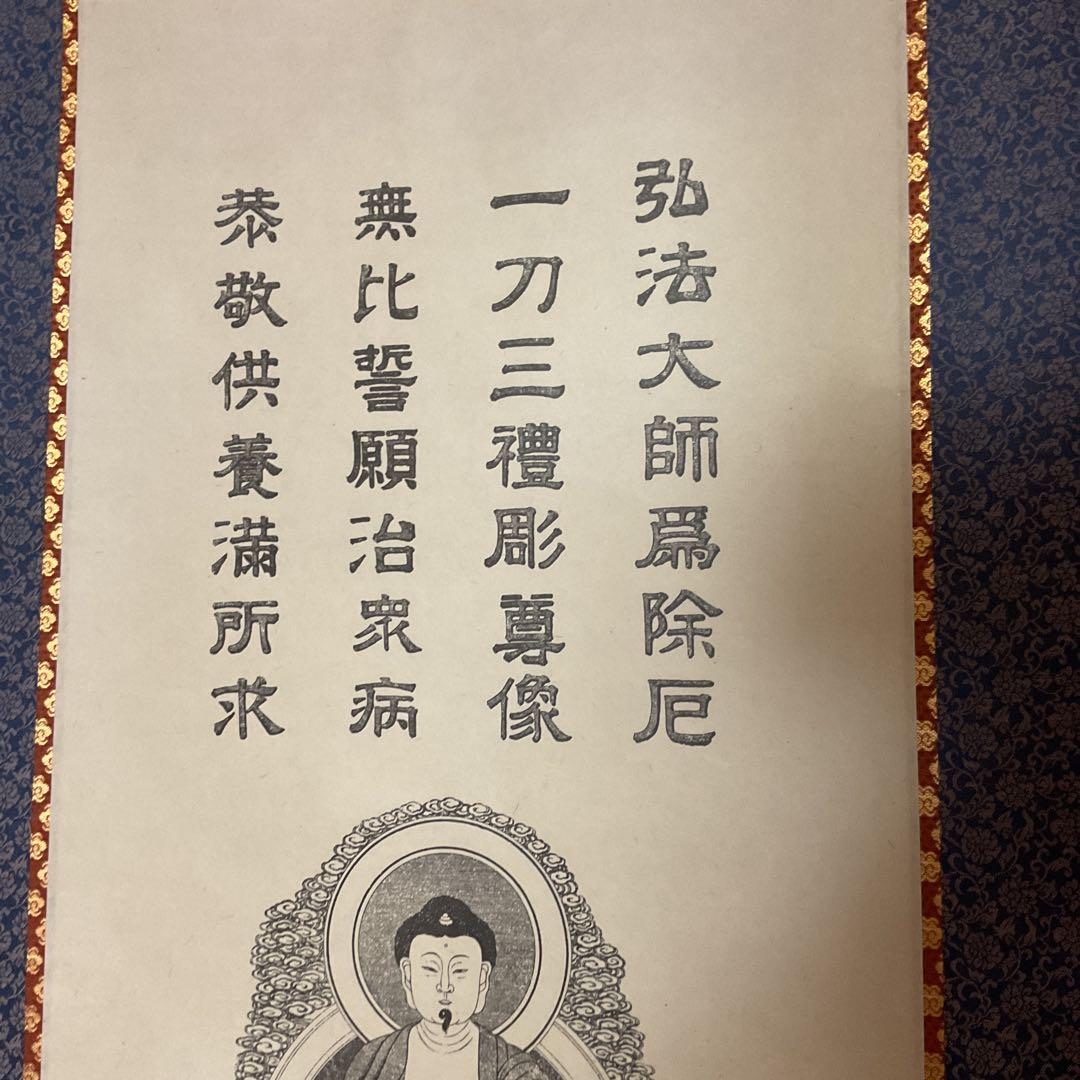 弘法大師爲除厄
一刀三禮彫尊像
無比誓願治衆病
恭敬供養滿所求